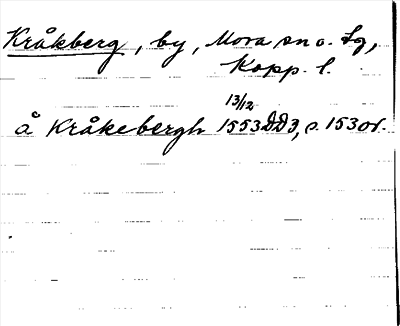 Kråkberg, by, Mora sn o. tg,
Kopp. l.
13/12
å Kråkebergh 1553 DD3, s. 153 or.